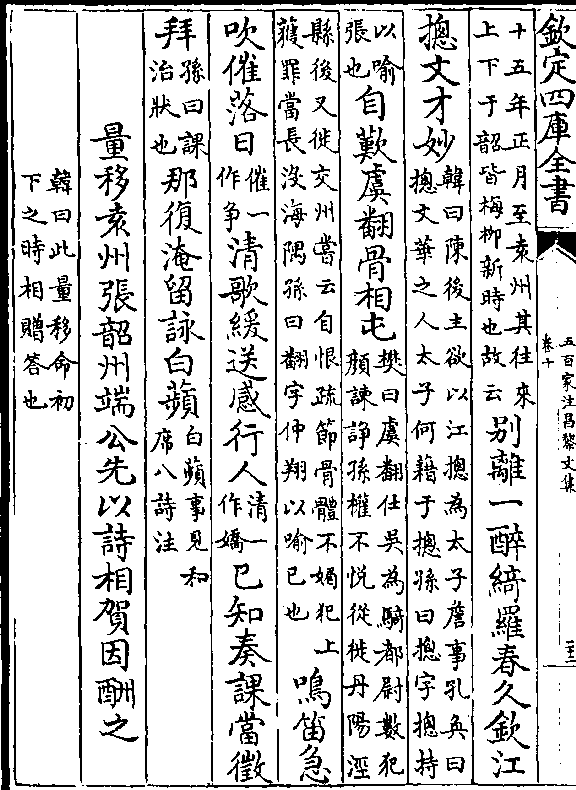 欽定四庫全書
五百家注昌黎文集
卷十
十五年正月至袁州其往來
上下于韶皆梅柳新時也故云
别離一醉綺羅春久欽江
摠文才妙
韓曰陳後主欲以江摠為太子詹事孔奐曰
摠文華之人太子何藉于摠孫曰摠字摠持
以喻
張也
自歎虞翻骨相屯
樊曰虞翻仕吳為騎都尉數犯
顔諫諍孫權不悦從徙丹陽涇
縣後又徙交州嘗云自恨疏節骨體不媚犯上
獲罪當長没海隅孫曰翻字仲翔以喻已也
鳴笛急
吹催落日
催一
作争
清歌緩送感行人
清一
作嬌
已知奏課當徵
拜
孫曰課
治狀也
那復淹留詠白蘋
白蘋事見和
席八詩注
量移袁州張韶州端公先以詩相賀因酬之
韓曰此量移命初
下之時相贈答也